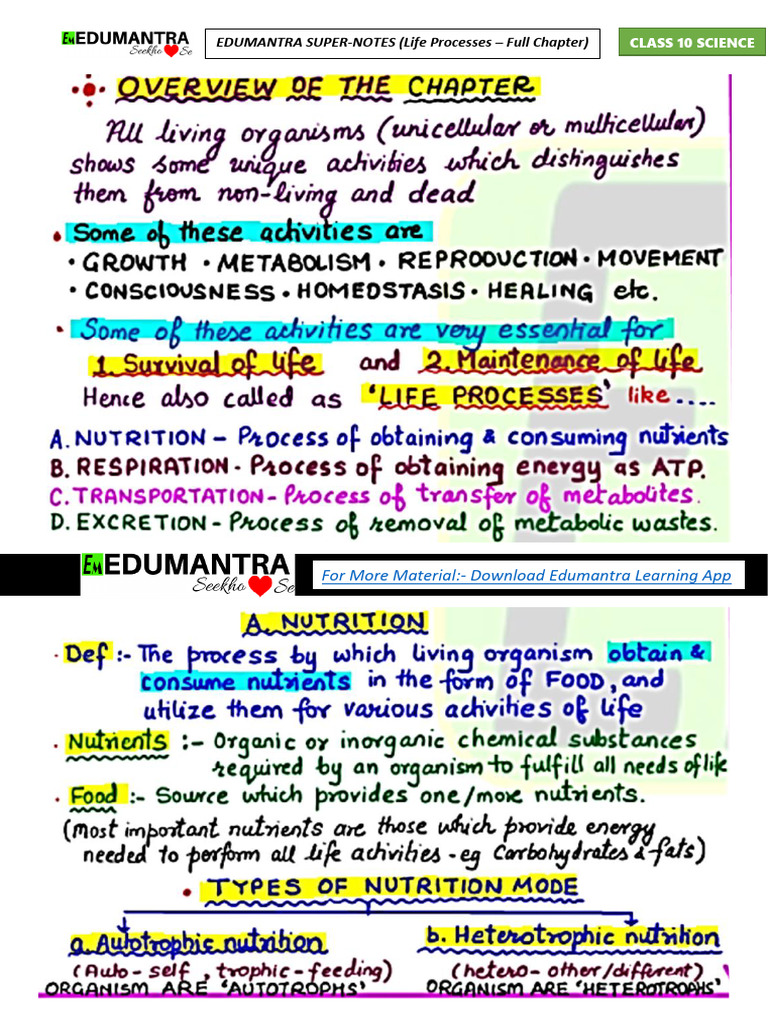 Em EDUMANTRA
Seekho Se
EDUMANTRA SUPER-NOTES (Life Processes – Full Chapter)
CLASS 10 SCIENCE
OVERVIEW OF THE CHAPTER
All living organisms (unicellular or multicellular)
shows some unique activities which distinguishes
them from non-living and dead
• Some of these activities are
• GROWTH • METABOLISM • REPRODUCTION • MOVEMENT
• CONSCIOUSNESS • HOMEOSTASIS • HEALING etc.
• Some of these activities are very essential for
1. Survival of life and 2. Maintenance of life
Hence also called as 'LIFE PROCESSES' like ....
A. NUTRITION – Process of obtaining & consuming nutrients
B. RESPIRATION - Process of obtaining energy as ATP.
C. TRANSPORTATION - Process of transfer of metabolites.
D. EXCRETION - Process of removal of metabolic wastes.
Em EDUMANTRA
Seekho Se
For More Material:- Download Edumantra Learning App
A. NUTRITION
• Def :- The process by which living organism obtain &
consume nutrients in the form of FOOD, and
utilize them for various activities of life
• Nutrients :- Organic or inorganic chemical substances
required by an organism to fulfill all needs of life
• Food :- Source which provides one/more nutrients.
(Most important nutrients are those which provide energy
needed to perform all life activities - eg Carbohydrates & fats)
• TYPES OF NUTRITION MODE
a. Autotrophic nutrition
b. Heterotrophic nutrition
(Auto - self , trophic - feeding)
(hetero - other/different)
ORGANISM ARE 'AUTOTROPHS'
ORGANISM ARE 'HETEROTROPHS'